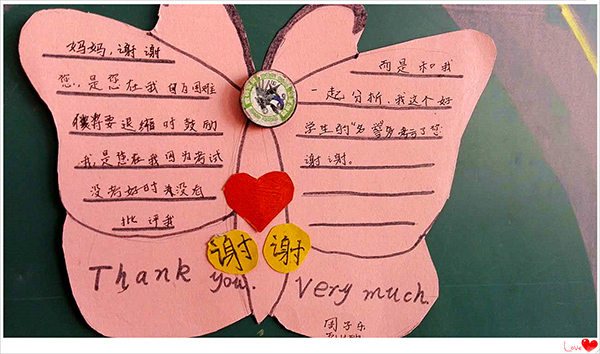 妈妈，谢谢
您，是您在我遇到困难
将要退缩时鼓励
我，是您在我因为考试
没考好时没有
批评我
而是和我
一起分析，我这个好
学生的"名
了您
谢谢。
谢 谢
Thank you. Very much.
周子乐
Love